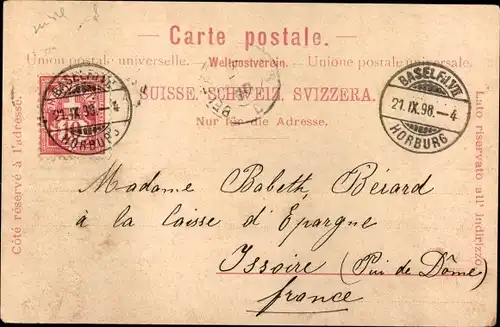 Carte postale.
Union postale universelle. Weltpostverein. Unione postale universale.
SUISSE. SCHWEIZ. SVIZZERA.
Nur für die Adresse.
Côté réservé à l'adresse.
Lato riservato all' indirizzo.
BASEL
21.IX.98.-4
HORBURG
10
BASEL
21.IX.98.-4
HORBURG
Madame Babeth Bérard
à la Caisse d'Épargne
Issoire (Puy de Dôme)
France